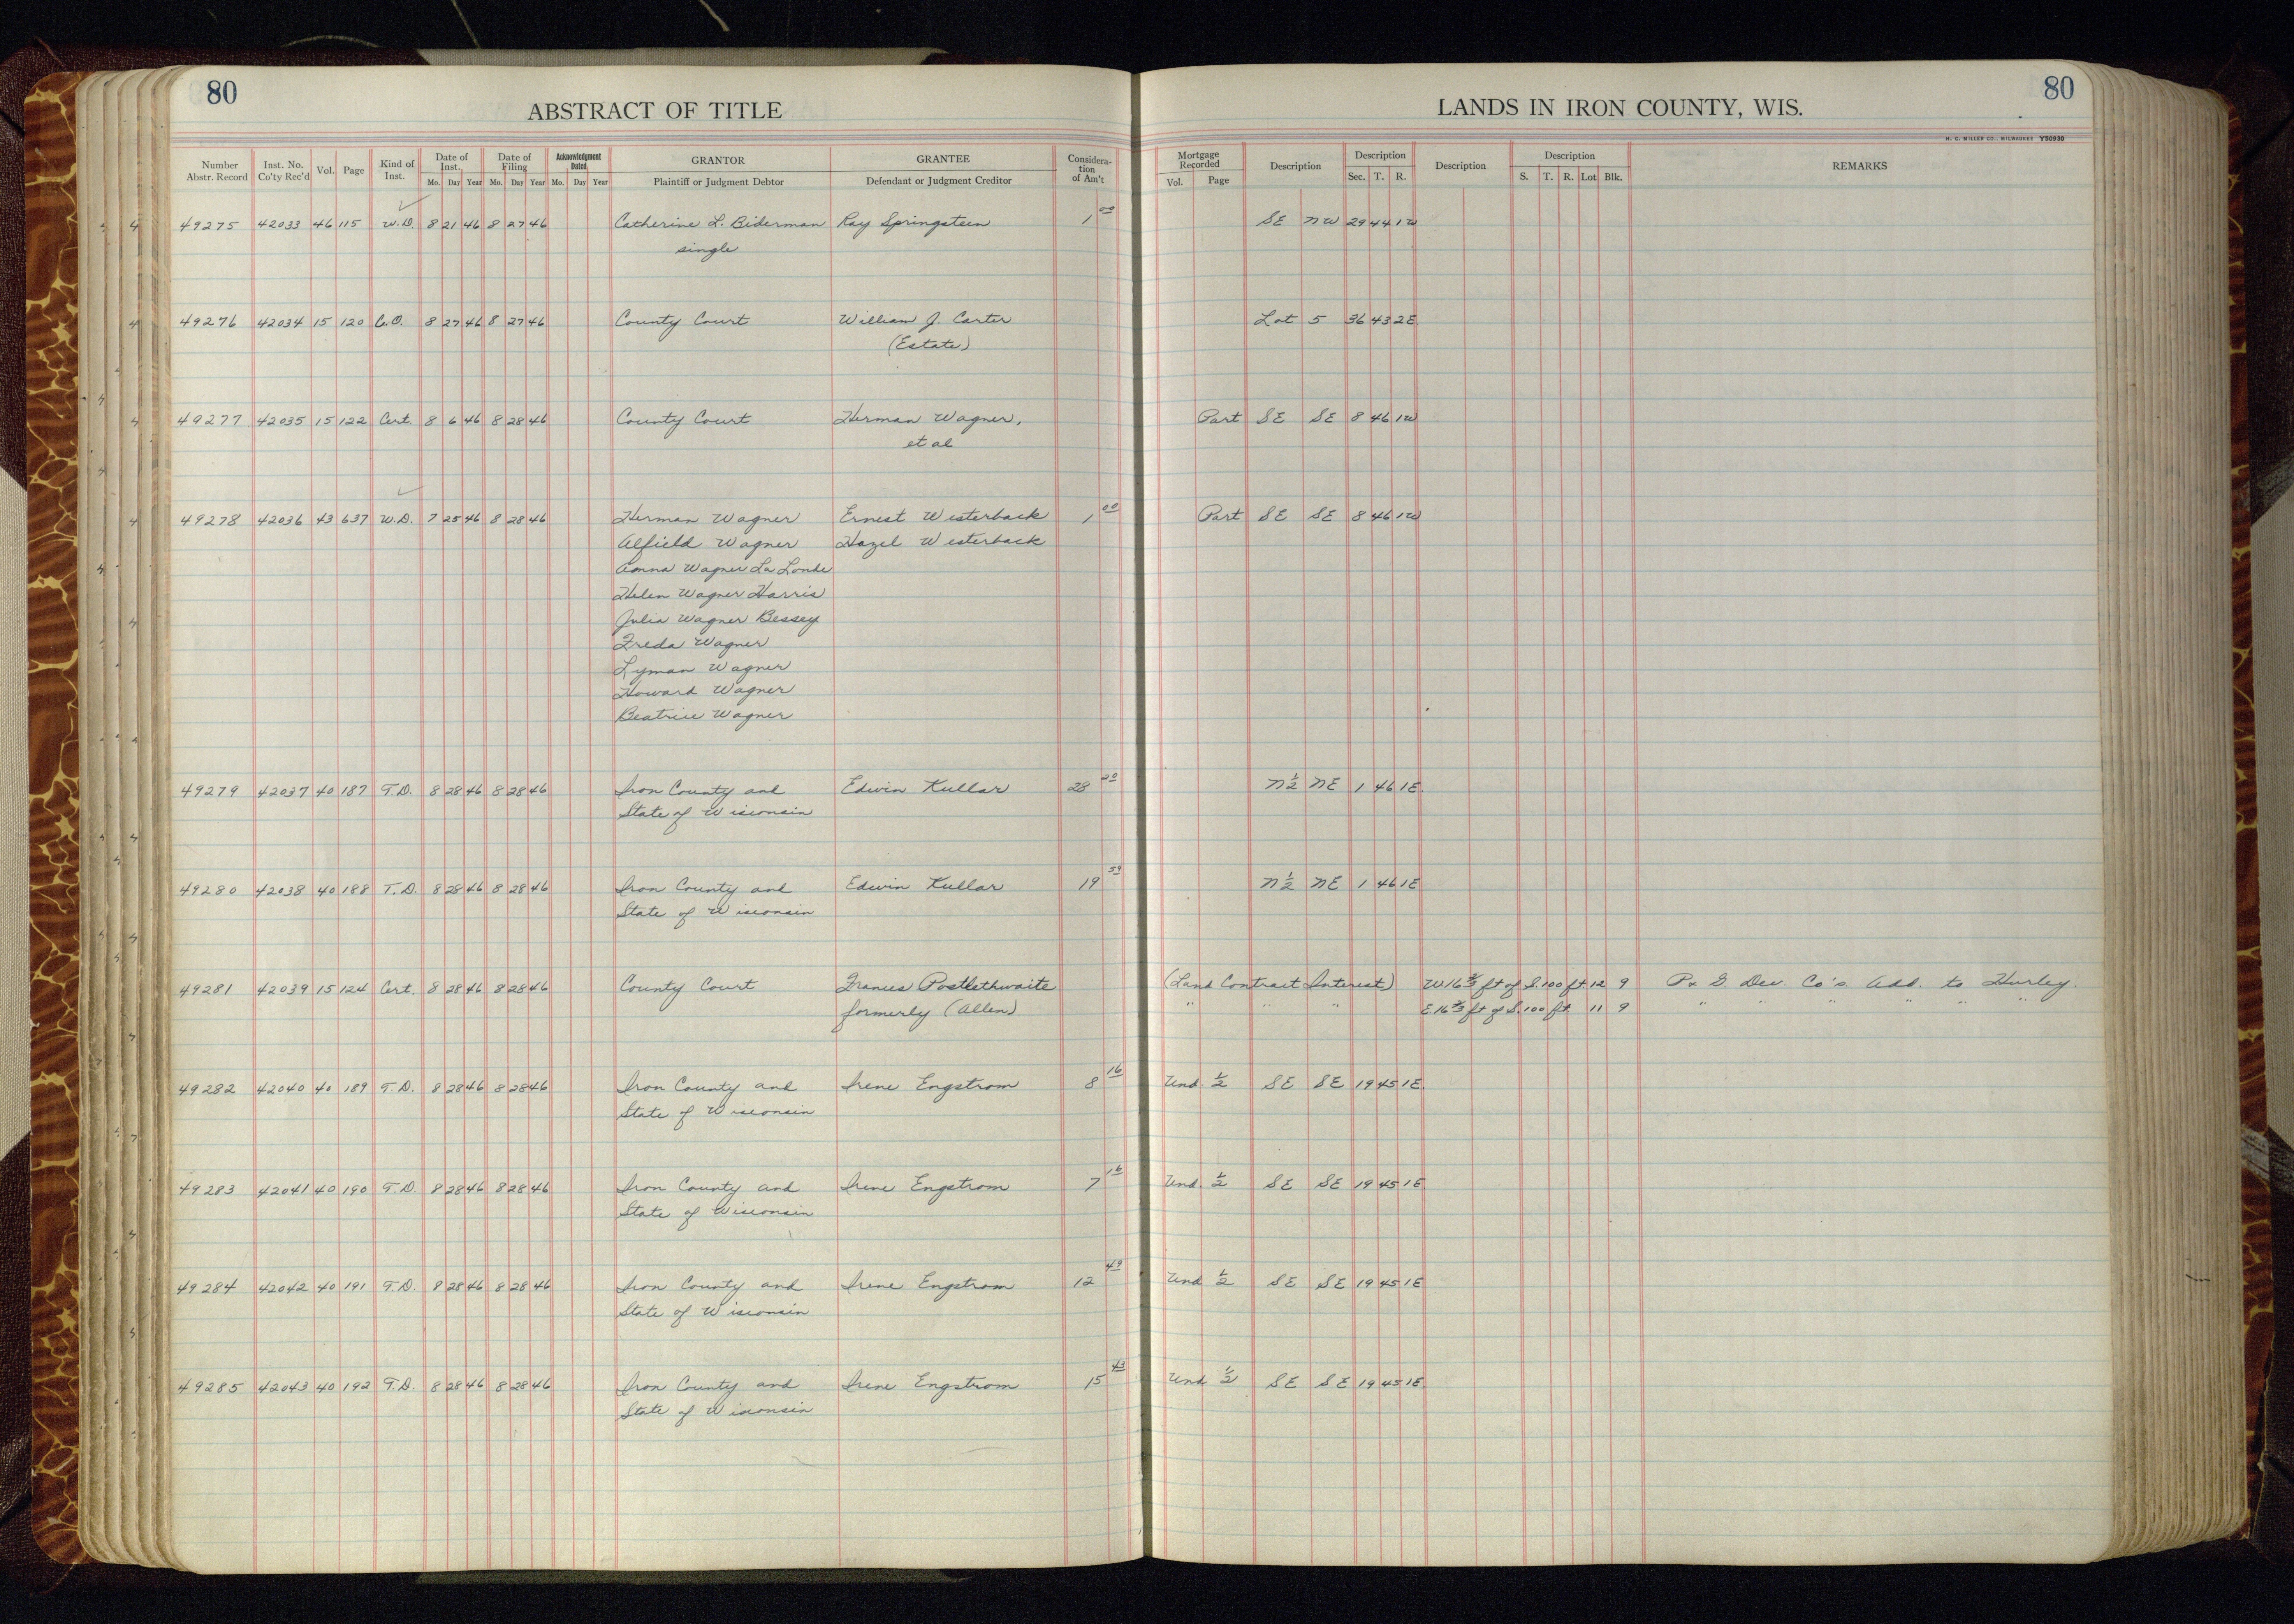 80
ABSTRACT OF TITLE
LANDS IN IRON COUNTY, WIS.
80
H. C. MILLER CO., MILWAUKEE Y50930
Number Abstr. Record | Inst. No. Co'ty Rec'd | Vol. | Page | Kind of Inst. | Date of Inst. Mo. Day Year | Date of Filing Mo. Day Year | Acknowledgment Dated Mo. Day Year | GRANTOR Plaintiff or Judgment Debtor | GRANTEE Defendant or Judgment Creditor | Considera-tion of Am't | Mortgage Recorded Vol. Page | Description | Description Sec. T. R. | Description | Description S. T. R. Lot Blk. | REMARKS
49275 42033 46 115 W.D. 8 21 46 8 27 46 Catherine L. Biderman Ray Springsteen 1 00 SE NW 29 44 1W
single
49276 42034 15 120 C.O. 8 27 46 8 27 46 County Court William J. Carter Lot 5 36 43 2E
(Estate)
49277 42035 15 122 Cert. 8 6 46 8 28 46 County Court Herman Wagner, Part SE SE 8 46 1W
et al
49278 42036 43 637 W.D. 7 25 46 8 28 46 Herman Wagner Ernest Westerback 1 00 Part SE SE 8 46 1W
Alfield Wagner Hazel Westerback
Anna Wagner La Londe
Helen Wagner Harris
Julia Wagner Bessey
Freda Wagner
Lyman Wagner
Howard Wagner
Beatrice Wagner
49279 42037 40 187 T.D. 8 28 46 8 28 46 Iron County and Edwin Kullar 28 20 N 1/2 NE 1 46 1E
State of Wisconsin
49280 42038 40 188 T.D. 8 28 46 8 28 46 Iron County and Edwin Kullar 19 59 N 1/2 NE 1 46 1E
State of Wisconsin
49281 42039 15 124 Cert. 8 28 46 8 28 46 County Court Frances Postlethwaite (Land Contract Interest) W 16 2/3 ft of S. 100 ft 12 9 P. & G. Dev. Co's Add. to Hurley.
formerly (Allen) " " " E. 16 2/3 ft of S. 100 ft 11 9 " " " " " "
49282 42040 40 189 T.D. 8 28 46 8 28 46 Iron County and Irene Engstrom 8 16 Und. 1/2 SE SE 19 45 1E
State of Wisconsin
49283 42041 40 190 T.D. 8 28 46 8 28 46 Iron County and Irene Engstrom 7 16 Und. 1/2 SE SE 19 45 1E
State of Wisconsin
49284 42042 40 191 T.D. 8 28 46 8 28 46 Iron County and Irene Engstrom 12 49 Und 1/2 SE SE 19 45 1E
State of Wisconsin
49285 42043 40 192 T.D. 8 28 46 8 28 46 Iron County and Irene Engstrom 15 43 Und 1/2 SE SE 19 45 1E
State of Wisconsin